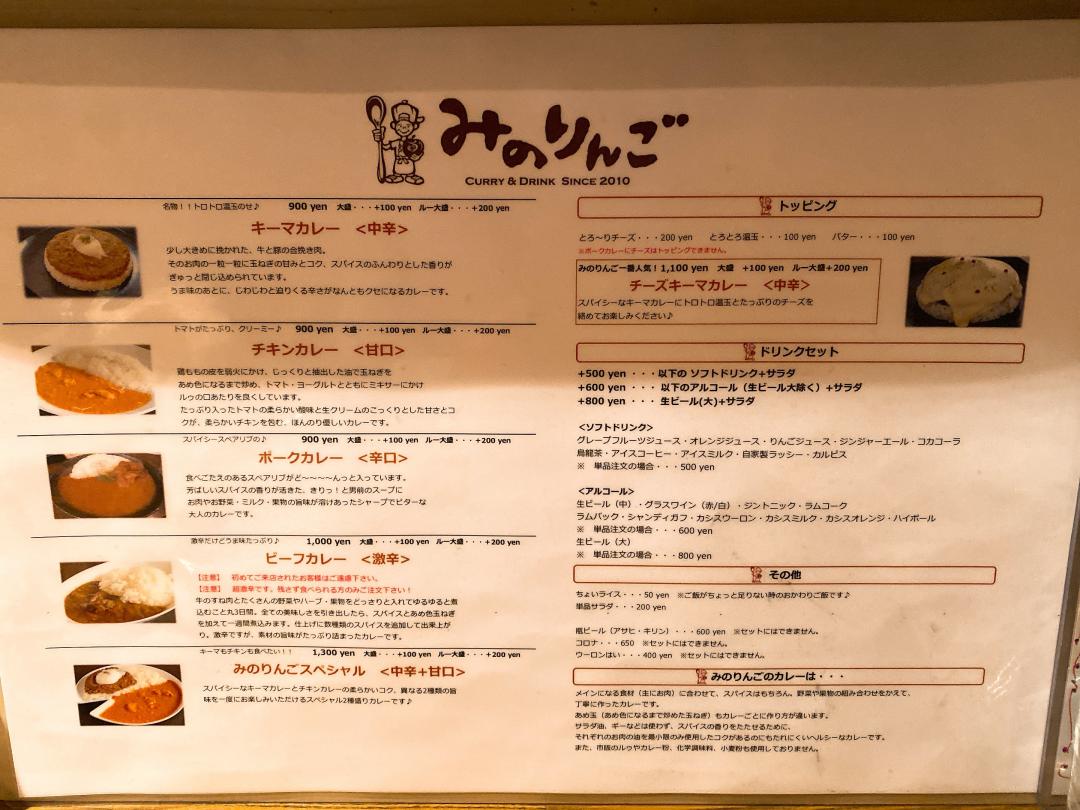 みのりんご
CURRY & DRINK SINCE 2010
名物！！トロトロ温玉のせ♪ 900 yen 大盛・・・+100 yen ルー大盛・・・+200 yen
キーマカレー <中辛>
少し大きめに挽かれた、牛と豚の合挽き肉。
そのお肉の一粒一粒に玉ねぎの甘みとコク、スパイスのふんわりとした香りが
ぎゅっと閉じ込められています。
うま味のあとに、じわじわと迫りくる辛さがなんともクセになるカレーです。
トマトがたっぷり、クリーミー♪ 900 yen 大盛・・・+100 yen ルー大盛・・・+200 yen
チキンカレー <甘口>
鶏ももの皮を弱火にかけ、じっくりと抽出した油で玉ねぎを
あめ色になるまで炒め、トマト・ヨーグルトとともにミキサーにかけ
ルゥの口あたりを良くしています。
たっぷり入ったトマトの柔らかい酸味と生クリームのこっくりとした甘さとコ
クが、柔らかいチキンを包む、ほんのり優しいカレーです。
スパイシースペアリブの♪ 900 yen 大盛・・・+100 yen ルー大盛・・・+200 yen
ポークカレー <辛口>
食べごたえのあるスペアリブがど～～～～んっと入っています。
芳ばしいスパイスの香りが活きた、きりっ！と男前のスープに
お肉やお野菜・ミルク・果物の旨味が溶けあったシャープでビターな
大人のカレーです。
激辛だけどうま味たっぷり♪ 1,000 yen 大盛・・・+100 yen ルー大盛・・・+200 yen
ビーフカレー <激辛>
【注意】 初めてご来店されたお客様はご遠慮下さい。
【注意】 超激辛です。残さず食べられる方のみご注文下さい！
牛のすね肉とたくさんの野菜やハーブ・果物をどっさりと入れてゆるゆると煮
込むこと丸3日間。全ての美味しさを引き出したら、スパイスとあめ色玉ねぎ
を加えて一週間煮込みます。仕上げに数種類のスパイスを追加して出来上が
り。激辛ですが、素材の旨味がたっぷり詰まったカレーです。
キーマもチキンも食べたい！！ 1,300 yen 大盛・・・+100 yen ルー大盛・・・+200 yen
みのりんごスペシャル <中辛+甘口>
スパイシーなキーマカレーとチキンカレーの柔らかいコク、異なる2種類の旨
味を一度にお楽しみいただけるスペシャル2種盛りカレーです♪
トッピング
とろ～りチーズ・・・200 yen とろとろ温玉・・・100 yen バター・・・100 yen
※ポークカレーにチーズはトッピングできません。
みのりんご一番人気！1,100 yen 大盛 +100 yen ルー大盛+200 yen
チーズキーマカレー <中辛>
スパイシーなキーマカレーにトロトロ温玉とたっぷりのチーズを
絡めてお楽しみください♪
ドリンクセット
+500 yen ・・・以下の ソフトドリンク+サラダ
+600 yen ・・・ 以下のアルコール（生ビール大除く）+サラダ
+800 yen ・・・ 生ビール(大)+サラダ
<ソフトドリンク>
グレープフルーツジュース・オレンジジュース・りんごジュース・ジンジャーエール・コカコーラ
烏龍茶・アイスコーヒー・アイスミルク・自家製ラッシー・カルピス
※ 単品注文の場合・・・500 yen
<アルコール>
生ビール（中）・グラスワイン（赤/白）・ジントニック・ラムコーク
ラムバック・シャンディガフ・カシスウーロン・カシスミルク・カシスオレンジ・ハイボール
※ 単品注文の場合・・・600 yen
生ビール（大）
※ 単品注文の場合・・・800 yen
その他
ちょいライス・・・50 yen ※ご飯がちょっと足りない時のおかわりご飯です♪
単品サラダ・・・200 yen
瓶ビール（アサヒ・キリン）・・・600 yen ※セットにはできません。
コロナ・・・650 ※セットにはできません。
ウーロンはい・・・400 yen ※セットにはできません。
みのりんごのカレーは・・・
メインになる食材（主にお肉）に合わせて、スパイスはもちろん、野菜や果物の組み合わせをかえて、
丁寧に作ったカレーです。
あめ玉（あめ色になるまで炒めた玉ねぎ）もカレーごとに作り方が違います。
サラダ油、ギーなどは使わず、スパイスの香りをたたせるために、
それぞれのお肉の油を最小限のみ使用したコクがあるのにもたれにくいヘルシーなカレーです。
また、市販のルゥやカレー粉、化学調味料、小麦粉も使用しておりません。